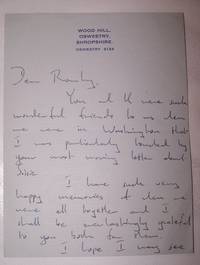 WOOD HILL,
OSWESTRY,
SHROPSHIRE.
OSWESTRY
Dear
You all were such
wonderful friends to us when
we were in Washington that
I was particularly touched by
your most moving letter about

I have such very
happy memories of when we
were all together and I
shall be everlastingly grateful
to you both for them.
I hope I may see